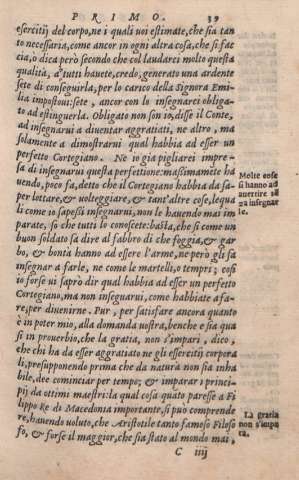 PRIMO. 39
esercitij del corpo, ne i quali uoi estimate, che sia tan
to necessaria, come ancor in ogni altra cosa, che si fac
cia, o dica però secondo che col laudarci molto questa
qualità, a' tutti hauete, credo, generato una ardente
sete di conseguirla, per lo carico della Signora Emi
lia impostoui: sete, ancor con lo insegnarci obliga-
to ad estinguerla. Obligato non son io, disse il Conte,
ad insegnarui a diuentar aggratiati, ne altro, ma
solamente a dimostrarui qual habbia ad esser un
perfetto Cortegiano. Ne io gia pigliarei impre-
sa di insegnarui questa perfettione: massimamẽte ha
uendo, poco fa, detto che il Cortegiano habbia da sa-
per lottare, & uolteggiare, & tant'altre cose, lequa
li come io sapessi insegnarui, non le hauendo mai im
parate, so che tutti lo conoscete: basta, che si come un
buon soldato sa dire al fabbro di che foggia, & gar
bo, & bontà hanno ad essere l'arme, ne però gli sa
insegnar a farle, ne come le martelli, o tempri; cosi
io forse ui saprò dir qual habbia ad esser un perfetto
Cortegiano, ma non inseguarui, come habbiate a fa-
re, per diuenirne. Pur, per satisfare ancora quanto
è in poter mio, alla domanda uostra, benche e sia qua
si in prouerbio, che la gratia, non s'impari, dico,
che chi ha da esser aggratiato ne gli essercitij corpora
li, presupponendo prima che da natura non sia inha
bile, dee cominciar per tempo; & imparar i princi-
pij da ottimi maestri: la qual cosa quãto paresse a Fi
lippo Re di Macedonia importante, si può comprende
re, hauendo uoluto, che Aristotile tanto famoso Filoso
fo, & forse il maggior, che sia stato al mondo mai,
C iiij
Molte cose
si hanno ad
auertire
ga insegnar
le.
La gratia
non s'impa
ra.